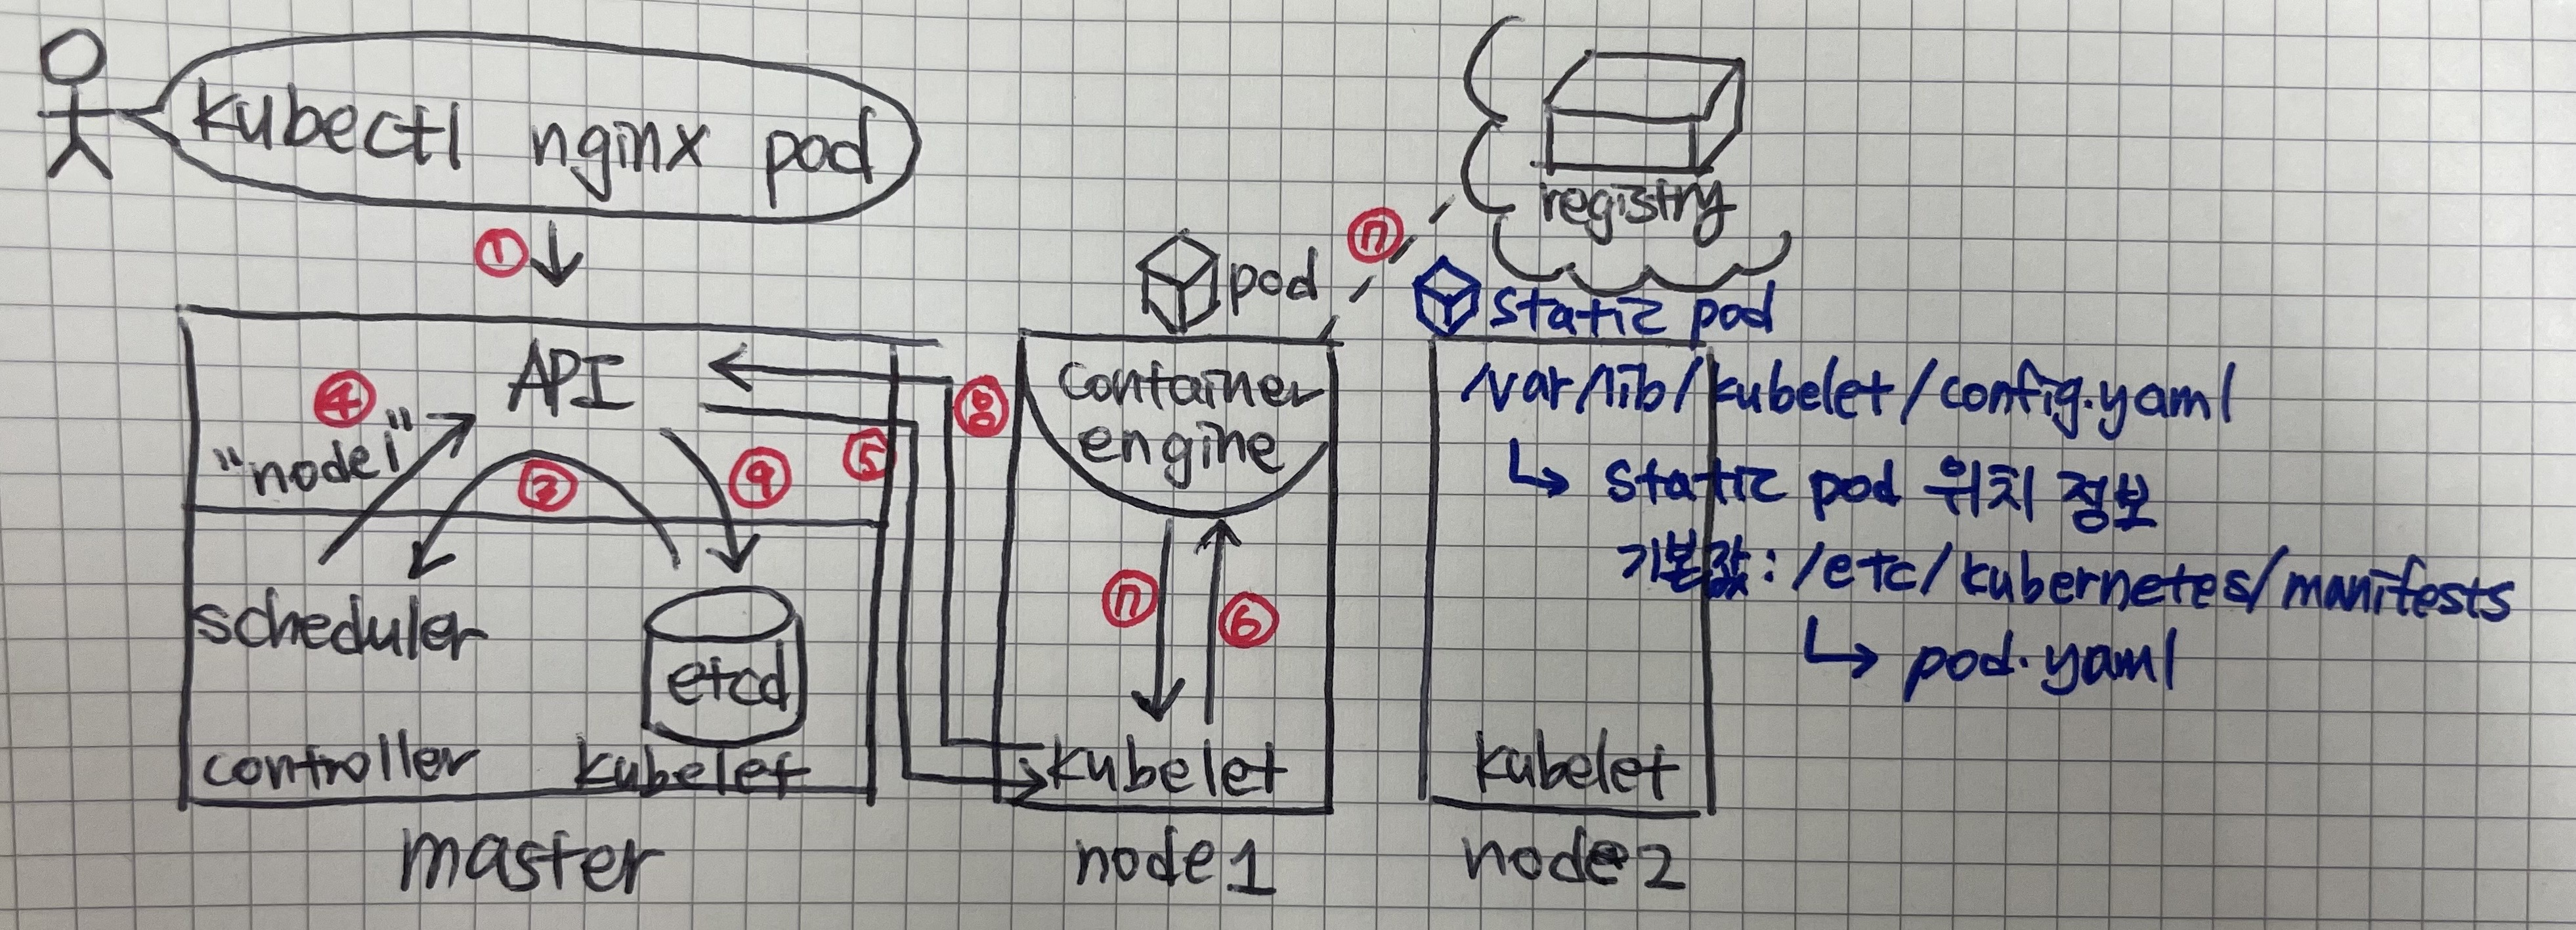 kubectl nginx pod
①
registry
⑦
pod
static pod
API
④
"node1"
③
⑨
⑤
⑧
container
engine
/var/lib/kubelet/config.yaml
↳ static pod 위치 정보
기본값: /etc/kubernetes/manifests
↳ pod.yaml
⑦
⑥
scheduler
etcd
controller
kubelet
kubelet
kubelet
master
node1
node2